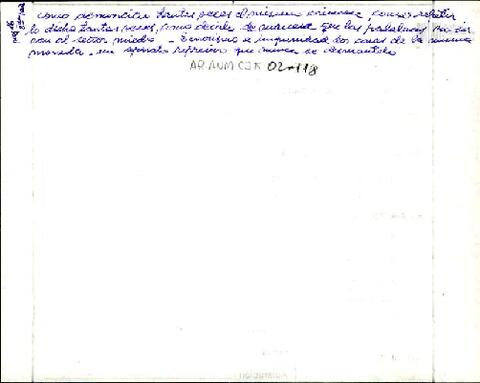 como denunciar tantas veces el mismo crimen, como repetir
lo dicho tantas veces, como decirle de manera que las palabras
con el terror miedo - Terrorismo e impunidad dos caras de la misma
moneda. un aparato represivo que nunca se desmanteló
ARANMCJK 02-118